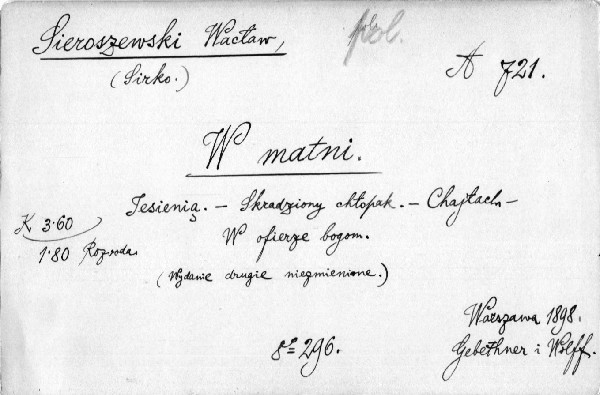 Sieroszewski Wacław,
pol.
(Sirko.)
A 721.
W matni.
Jesienią. — Skradziony chłopak. — Chajłach —
W ofierze bogom.
K 3·60
1·80 Rozvoda.
(Wydanie drugie niezmienione.)
Warszawa 1898.
8° 296.
Gebethner i Wolff.